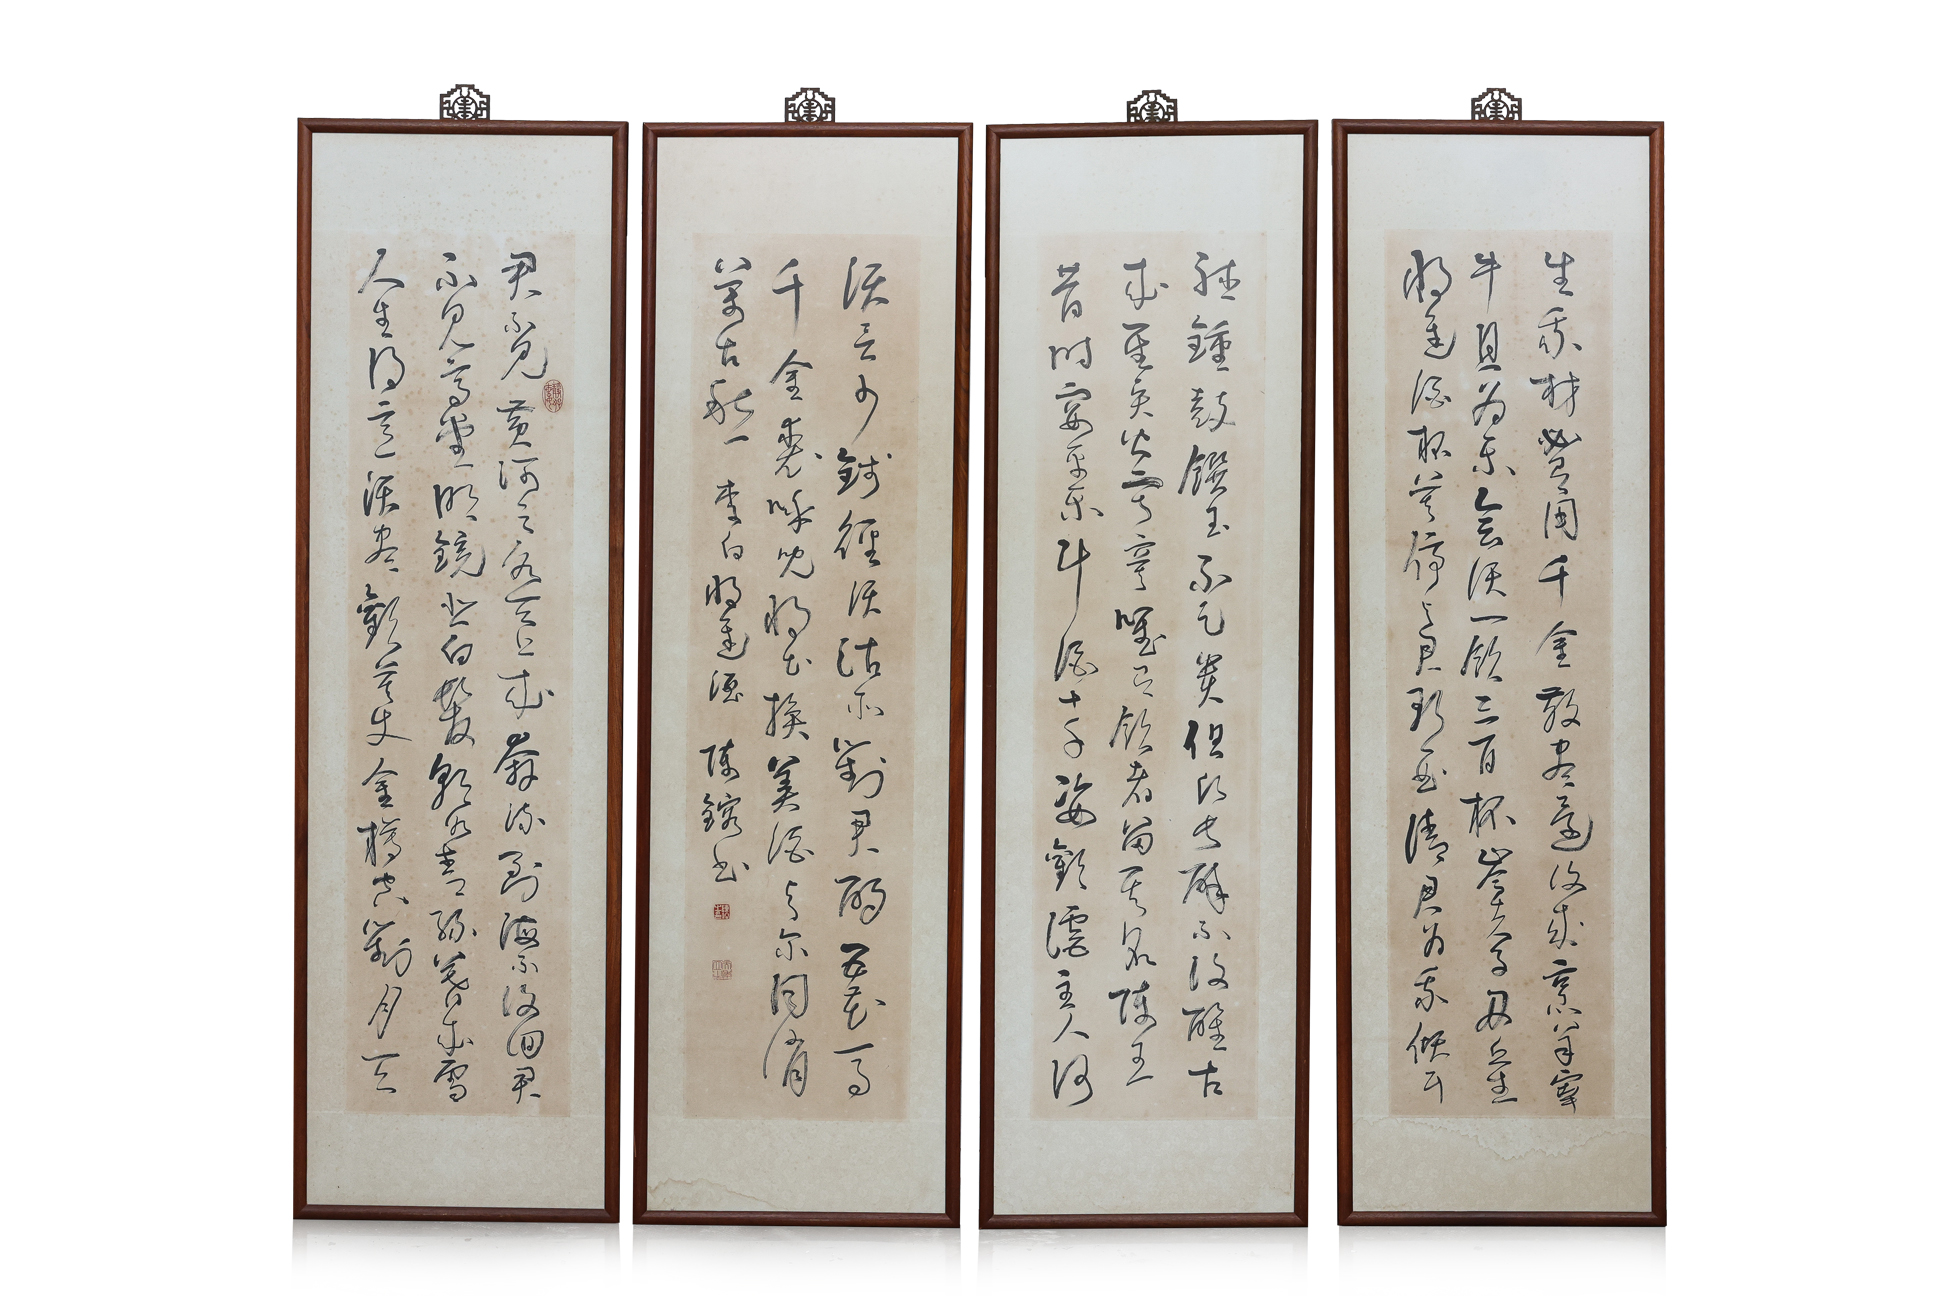 君不見黃河之水天上來奔流到海不復回君
不見高堂明鏡悲白髮朝如青絲暮成雪
人生得意須盡歡莫使金樽空對月天
生我材必有用千金散盡還復來烹羊宰
牛且為樂會須一飲三百杯岑夫子丹丘生
將進酒杯莫停與君歌一曲請君為我傾耳
聽鐘鼓饌玉不足貴但願長醉不復醒古
來聖賢皆寂寞惟有飲者留其名陳王
昔時宴平樂斗酒十千恣歡謔主人何
須言少錢徑須沽取對君酌五花馬
千金裘呼兒將出換美酒與爾同消
萬古愁 李白將進酒 陳鎔書